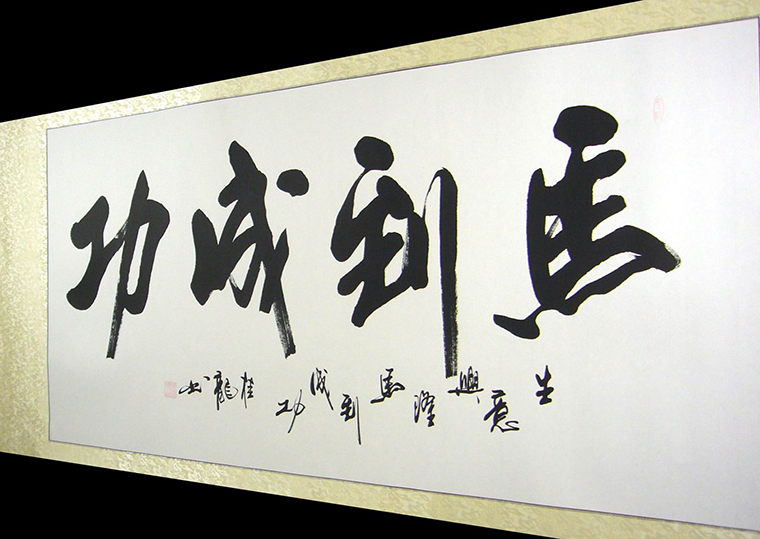 馬到成功
生意興隆馬到成功桂龍書